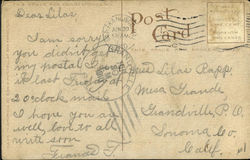 Dear Lilas
Post
Card
I am sorry
you didn't get
my postal I sent
it last Friday at
2 o'clock mail
I hope you are
well love to all
write soon
Miss Lilas Rapp
Mesa Grande
Grandville P.O.
Sonoma Co.
Calif.